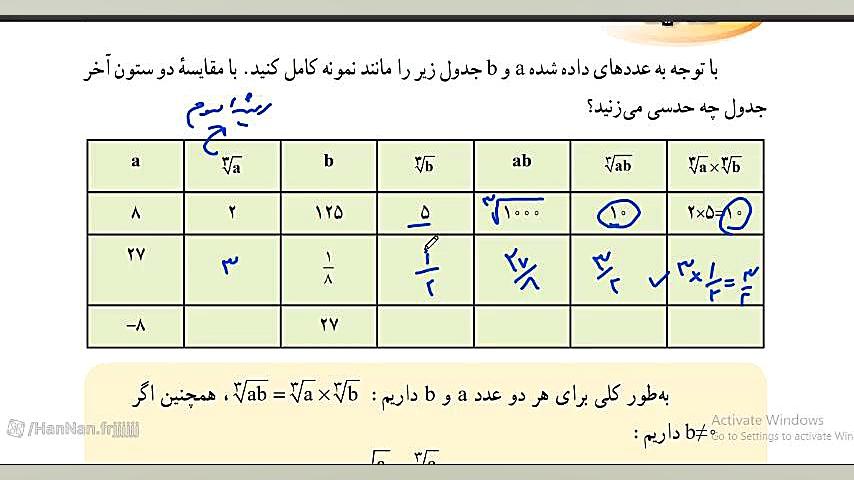 با توجه به عددهای داده شده a و b جدول زیر را مانند نمونه کامل کنید. با مقایسهٔ دو ستون آخر
جدول چه حدسی می‌زنید؟
ریشه سوم
a ∛a b ∛b ab ∛ab ∛a×∛b
۸ ۲ ۱۲۵ ۵ ∛۱۰۰۰ ۱۰ ۲×۵=۱۰
۲۷ ۳ ۱/۸ ۱/۲ ۲۷/۸ ۳/۲ ✓ ۳×۱/۲=۳/۲
−۸ ۲۷
به‌طور کلی برای هر دو عدد a و b داریم : ∛ab = ∛a×∛b ، همچنین اگر
b≠۰ داریم :
Activate Windows
Go to Settings to activate Win
/HanNan.frjjjjjj